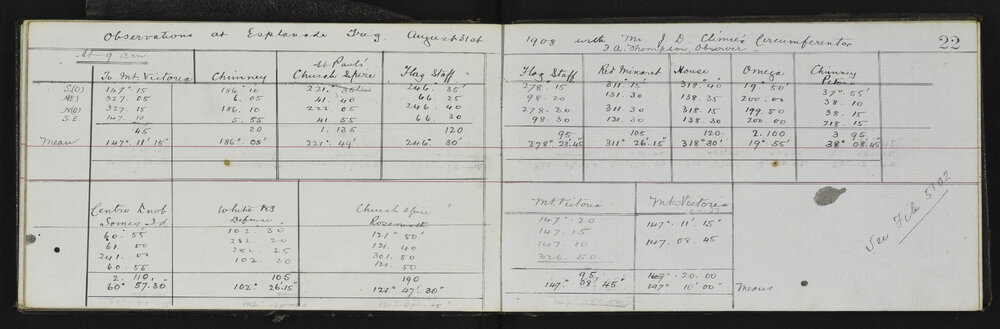 Observations at Esplanade Trig. August 31st
At 9 am
To Mt Victoria Chimney St Pauls' Church Spire Flag Staff
S(O) 147° 15 186° 10 221° 35' 246. 35'
N(E) 327. 05 6. 05 41. 40 66 25
N(O) 327. 15 186. 10 222. 05 246. 40
S.E. 147. 10 5. 55 41 55 66. 30
45 20 1. 135 120
Mean 147° 11' 15" 186° 05' 221° 49' 246° 30'
Centre Knob Somes I'd White Peg Defiance Church Spire Roseneath
60. 55 102. 30 121° 50'
61. 00 282. 20 121. 40
241. 00 282. 25 301. 50
60. 55 102. 30 121. 50
2. 110. 105 190
60° 57.30" 102° 26.15" 121° 47'. 30"
1908 with Mr J. D. Climie's Circumferentor
J. A. Thompson, Observer
22
Flag Staff Ret Minaret House Omega Chimney Petone
278. 15 311° 15' 318° 40' 19° 50' 37° 55'
98. 20 131. 30 138. 35 200. 00 38. 10
278. 30 311. 30 318. 15 199. 50 38. 15
98. 30 131. 30 138. 30 200. 00 218. 15
95 105 120 2. 100 3 95
278° 23.45" 311° 26.15" 318° 30' 19° 55' 38° 08.45"
Mt Victoria Mt. Victoria
147°. 20 147°. 11'. 15"
147. 15
147. 10 147. 08. 45
326. 50
95' 147°. 20. 00
147°. 08'. 45" 147° 10' 00" Means
See Feb